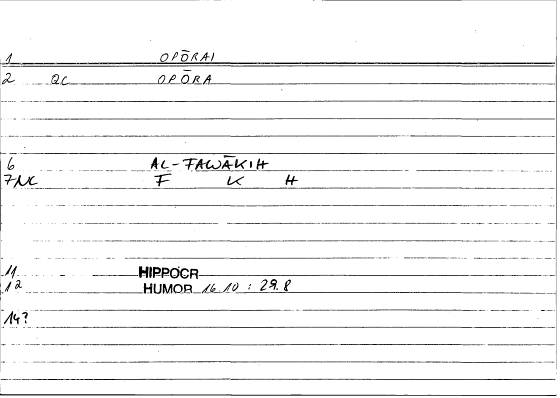 1 OPŌRAI
2 QC OPŌRA
6 AL-FAWĀKIH
7NC F K H
11 HIPPOCR
12 HUMOR 16 10 : 29.8
14?